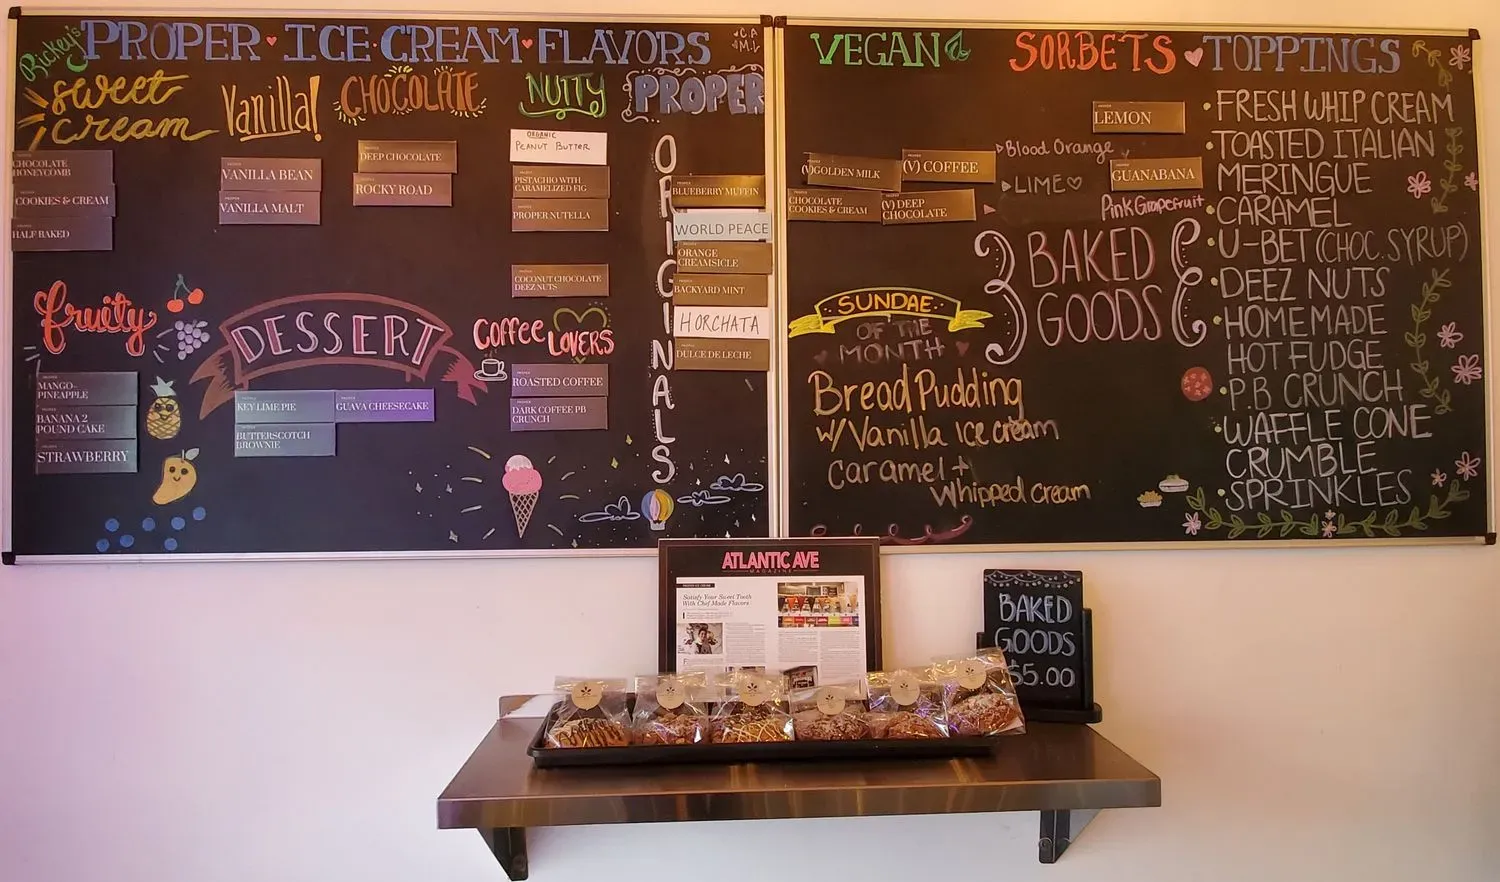 Rickey's
PROPER ICE CREAM FLAVORS
sweet
cream
CHOCOLATE
HONEYCOMB
COOKIES & CREAM
HALF BAKED
Vanilla!
VANILLA BEAN
VANILLA MALT
CHOCOLATE
DEEP CHOCOLATE
ROCKY ROAD
NUTTY
ORGANIC
PEANUT BUTTER
PISTACHIO WITH
CARAMELIZED FIG
PROPER NUTELLA
COCONUT CHOCOLATE
DEEZ NUTS
PROPER
ORIGINALS
BLUEBERRY MUFFIN
WORLD PEACE
ORANGE
CREAMSICLE
BACKYARD MINT
HORCHATA
DULCE DE LECHE
fruity
MANGO-
PINEAPPLE
BANANA 2
POUND CAKE
STRAWBERRY
DESSERT
KEY LIME PIE
GUAVA CHEESECAKE
BUTTERSCOTCH
BROWNIE
Coffee LOVERS
ROASTED COFFEE
DARK COFFEE PB
CRUNCH
VEGAN
(V)GOLDEN MILK
(V) COFFEE
CHOCOLATE
COOKIES & CREAM
(V) DEEP
CHOCOLATE
SORBETS
LEMON
Blood Orange
LIME
GUANABANA
Pink Grapefruit
BAKED
GOODS
SUNDAE
OF THE
MONTH
Bread Pudding
w/Vanilla Ice cream
caramel +
Whipped cream
TOPPINGS
• FRESH WHIP CREAM
• TOASTED ITALIAN
MERINGUE
• CARAMEL
• U-BET (CHOC. SYRUP)
• DEEZ NUTS
• HOMEMADE
HOT FUDGE
• P.B CRUNCH
• WAFFLE CONE
CRUMBLE
• SPRINKLES
ATLANTIC AVE
MAGAZINE
Satisfy Your Sweet Tooth
With Chef Made Flavors
BAKED
GOODS
$5.00